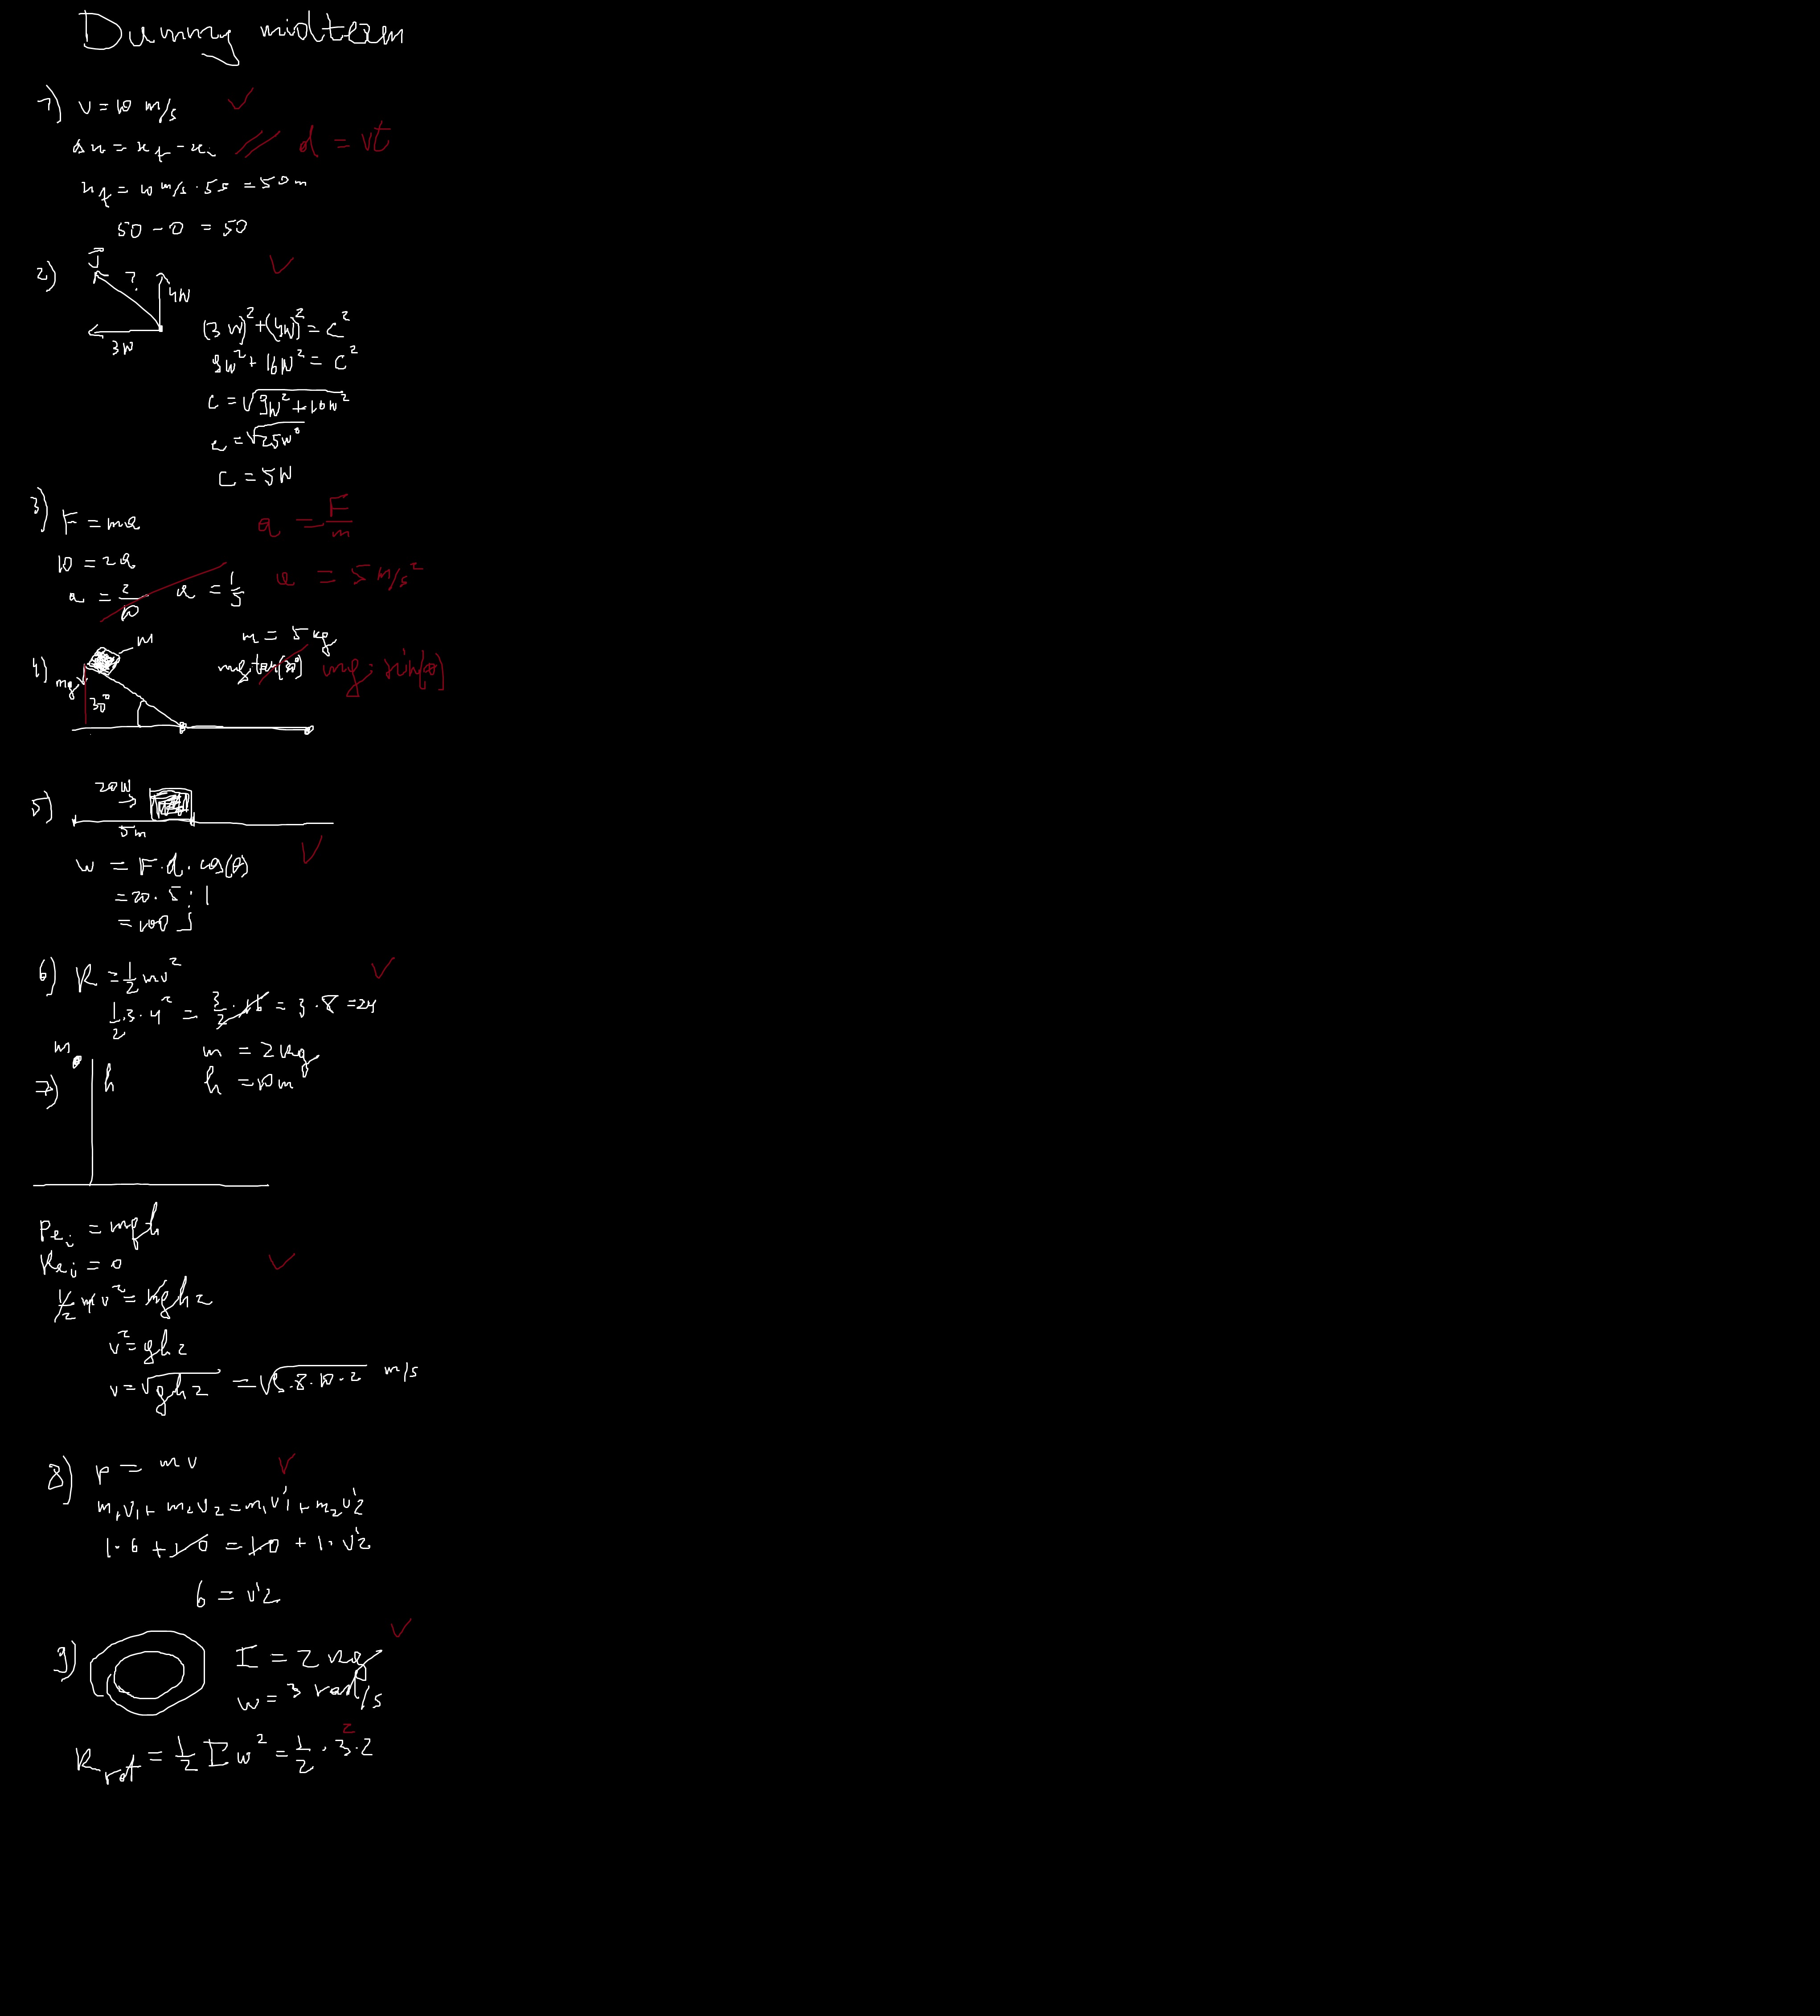 Dummy midterm
1) v = 10 m/s ✓
Δx = x_f - x_i // d = vt
x_f = 10 m/s · 5s = 50m
50 - 0 = 50
2) J ? 4N ✓
3N
(3N)² + (4N)² = C²
9N² + 16N² = C²
C = √9N² + 16N²
c = √25N²
C = 5N
3) F = ma a = F/m
10 = 2a
a = 2/10 a = 1/5 a = 5 m/s²
4) m m = 5 kg
mg mg tan(30°) mg · sin(θ)
30°
5) 20N
5m
W = F · d · cos(θ) ✓
= 20 · 5 · 1
= 100 J
6) K = 1/2 mv² ✓
1/2 · 3 · 4² = 3/2 · 16 = 3 · 8 = 24
7) m h m = 2kg
h = 10m
Pe_i = mgh
Ke_i = 0 ✓
1/2 mv² = mgh2
v² = gh2
v = √gh2 = √9.8·10·2 m/s
8) p = mv ✓
m₁v₁ + m₂v₂ = m₁v'1 + m₂v'2
1·6 + 1·0 = 1·0 + 1·v'2
6 = v'2
9) I = 2 kg ✓
w = 3 rad/s
K_rot = 1/2 I w² = 1/2 · 3² · 2